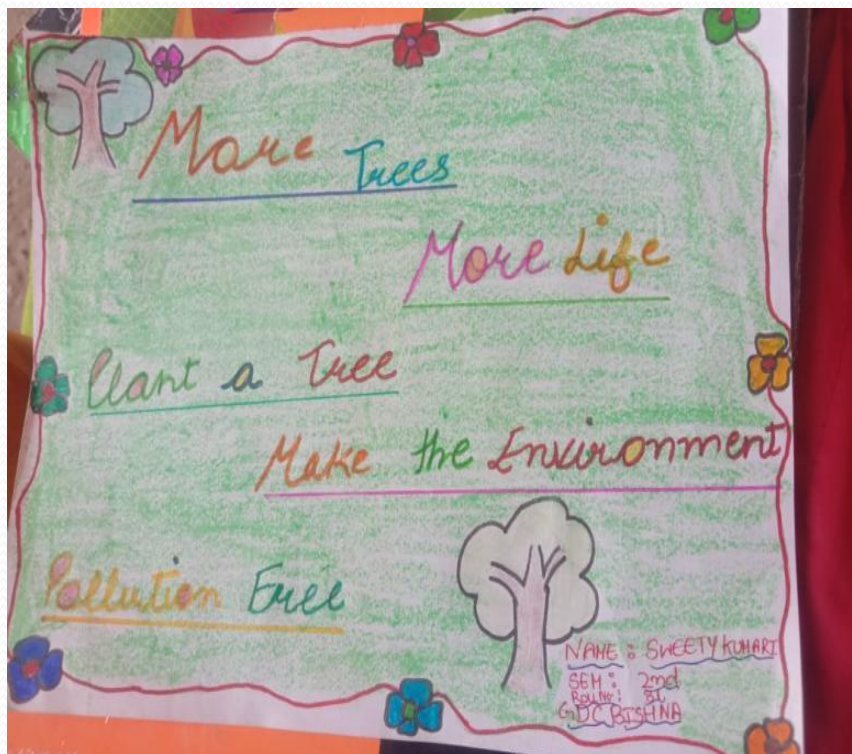 More Trees
More Life
Plant a Tree
Make the Environment
Pollution Free
NAME : SWEETY KUMARI
SEM : 2nd
GDC BISHNA